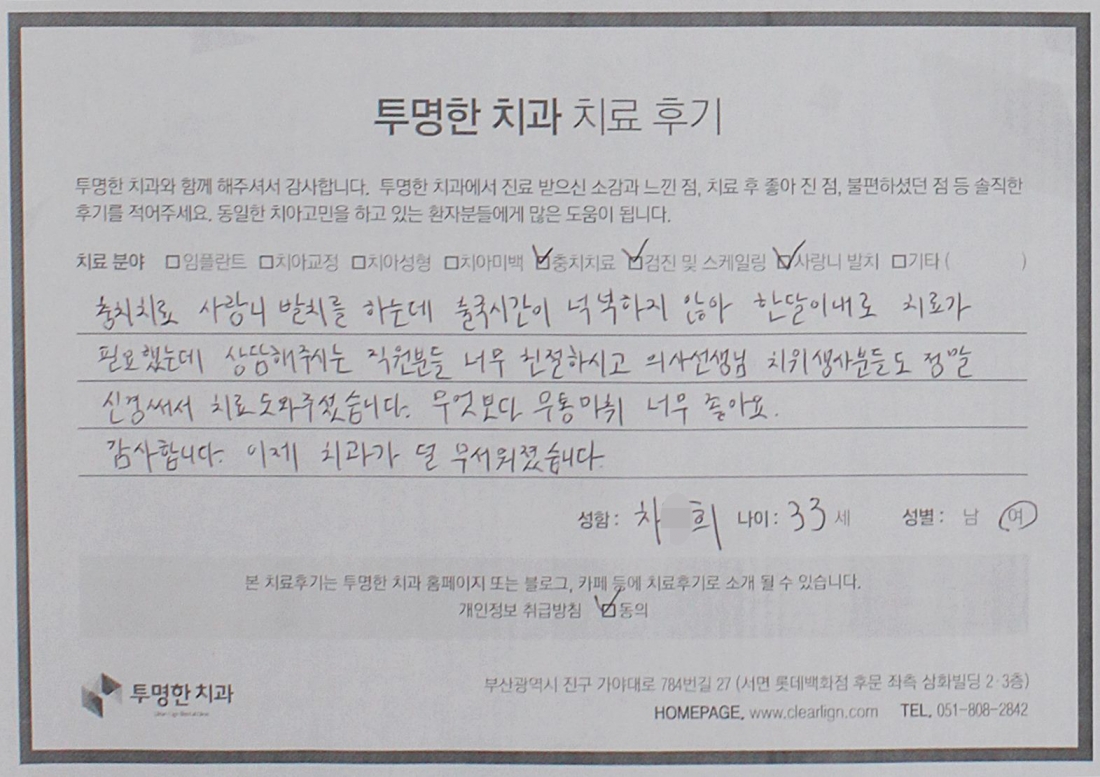 투명한 치과 치료 후기
투명한 치과와 함께 해주셔서 감사합니다. 투명한 치과에서 진료 받으신 소감과 느낀 점, 치료 후 좋아 진 점, 불편하셨던 점 등 솔직한
후기를 적어주세요. 동일한 치아고민을 하고 있는 환자분들에게 많은 도움이 됩니다.
치료 분야 □임플란트 □치아교정 □치아성형 □치아미백 ☑충치치료 ☑검진 및 스케일링 ☑사랑니 발치 □기타 ( )
충치치료 사랑니 발치를 하는데 출국시간이 넉넉하지 않아 한달이내로 치료가
필요했는데 상담해주시는 직원분들 너무 친절하시고 의사선생님 치위생사분들도 정말
신경써서 치료도와주셨습니다. 무엇보다 무통마취 너무 좋아요.
감사합니다. 이제 치과가 덜 무서워졌습니다.
성함 : 차 희 나이 : 33 세 성별 : 남 여
본 치료후기는 투명한 치과 홈페이지 또는 블로그, 카페 등에 치료후기로 소개 될 수 있습니다.
개인정보 취급방침 ☑동의
투명한 치과
부산광역시 진구 가야대로 784번길 27 (서면 롯데백화점 후문 좌측 삼화빌딩 2·3층)
HOMEPAGE. www.clearlign.com TEL. 051-808-2842